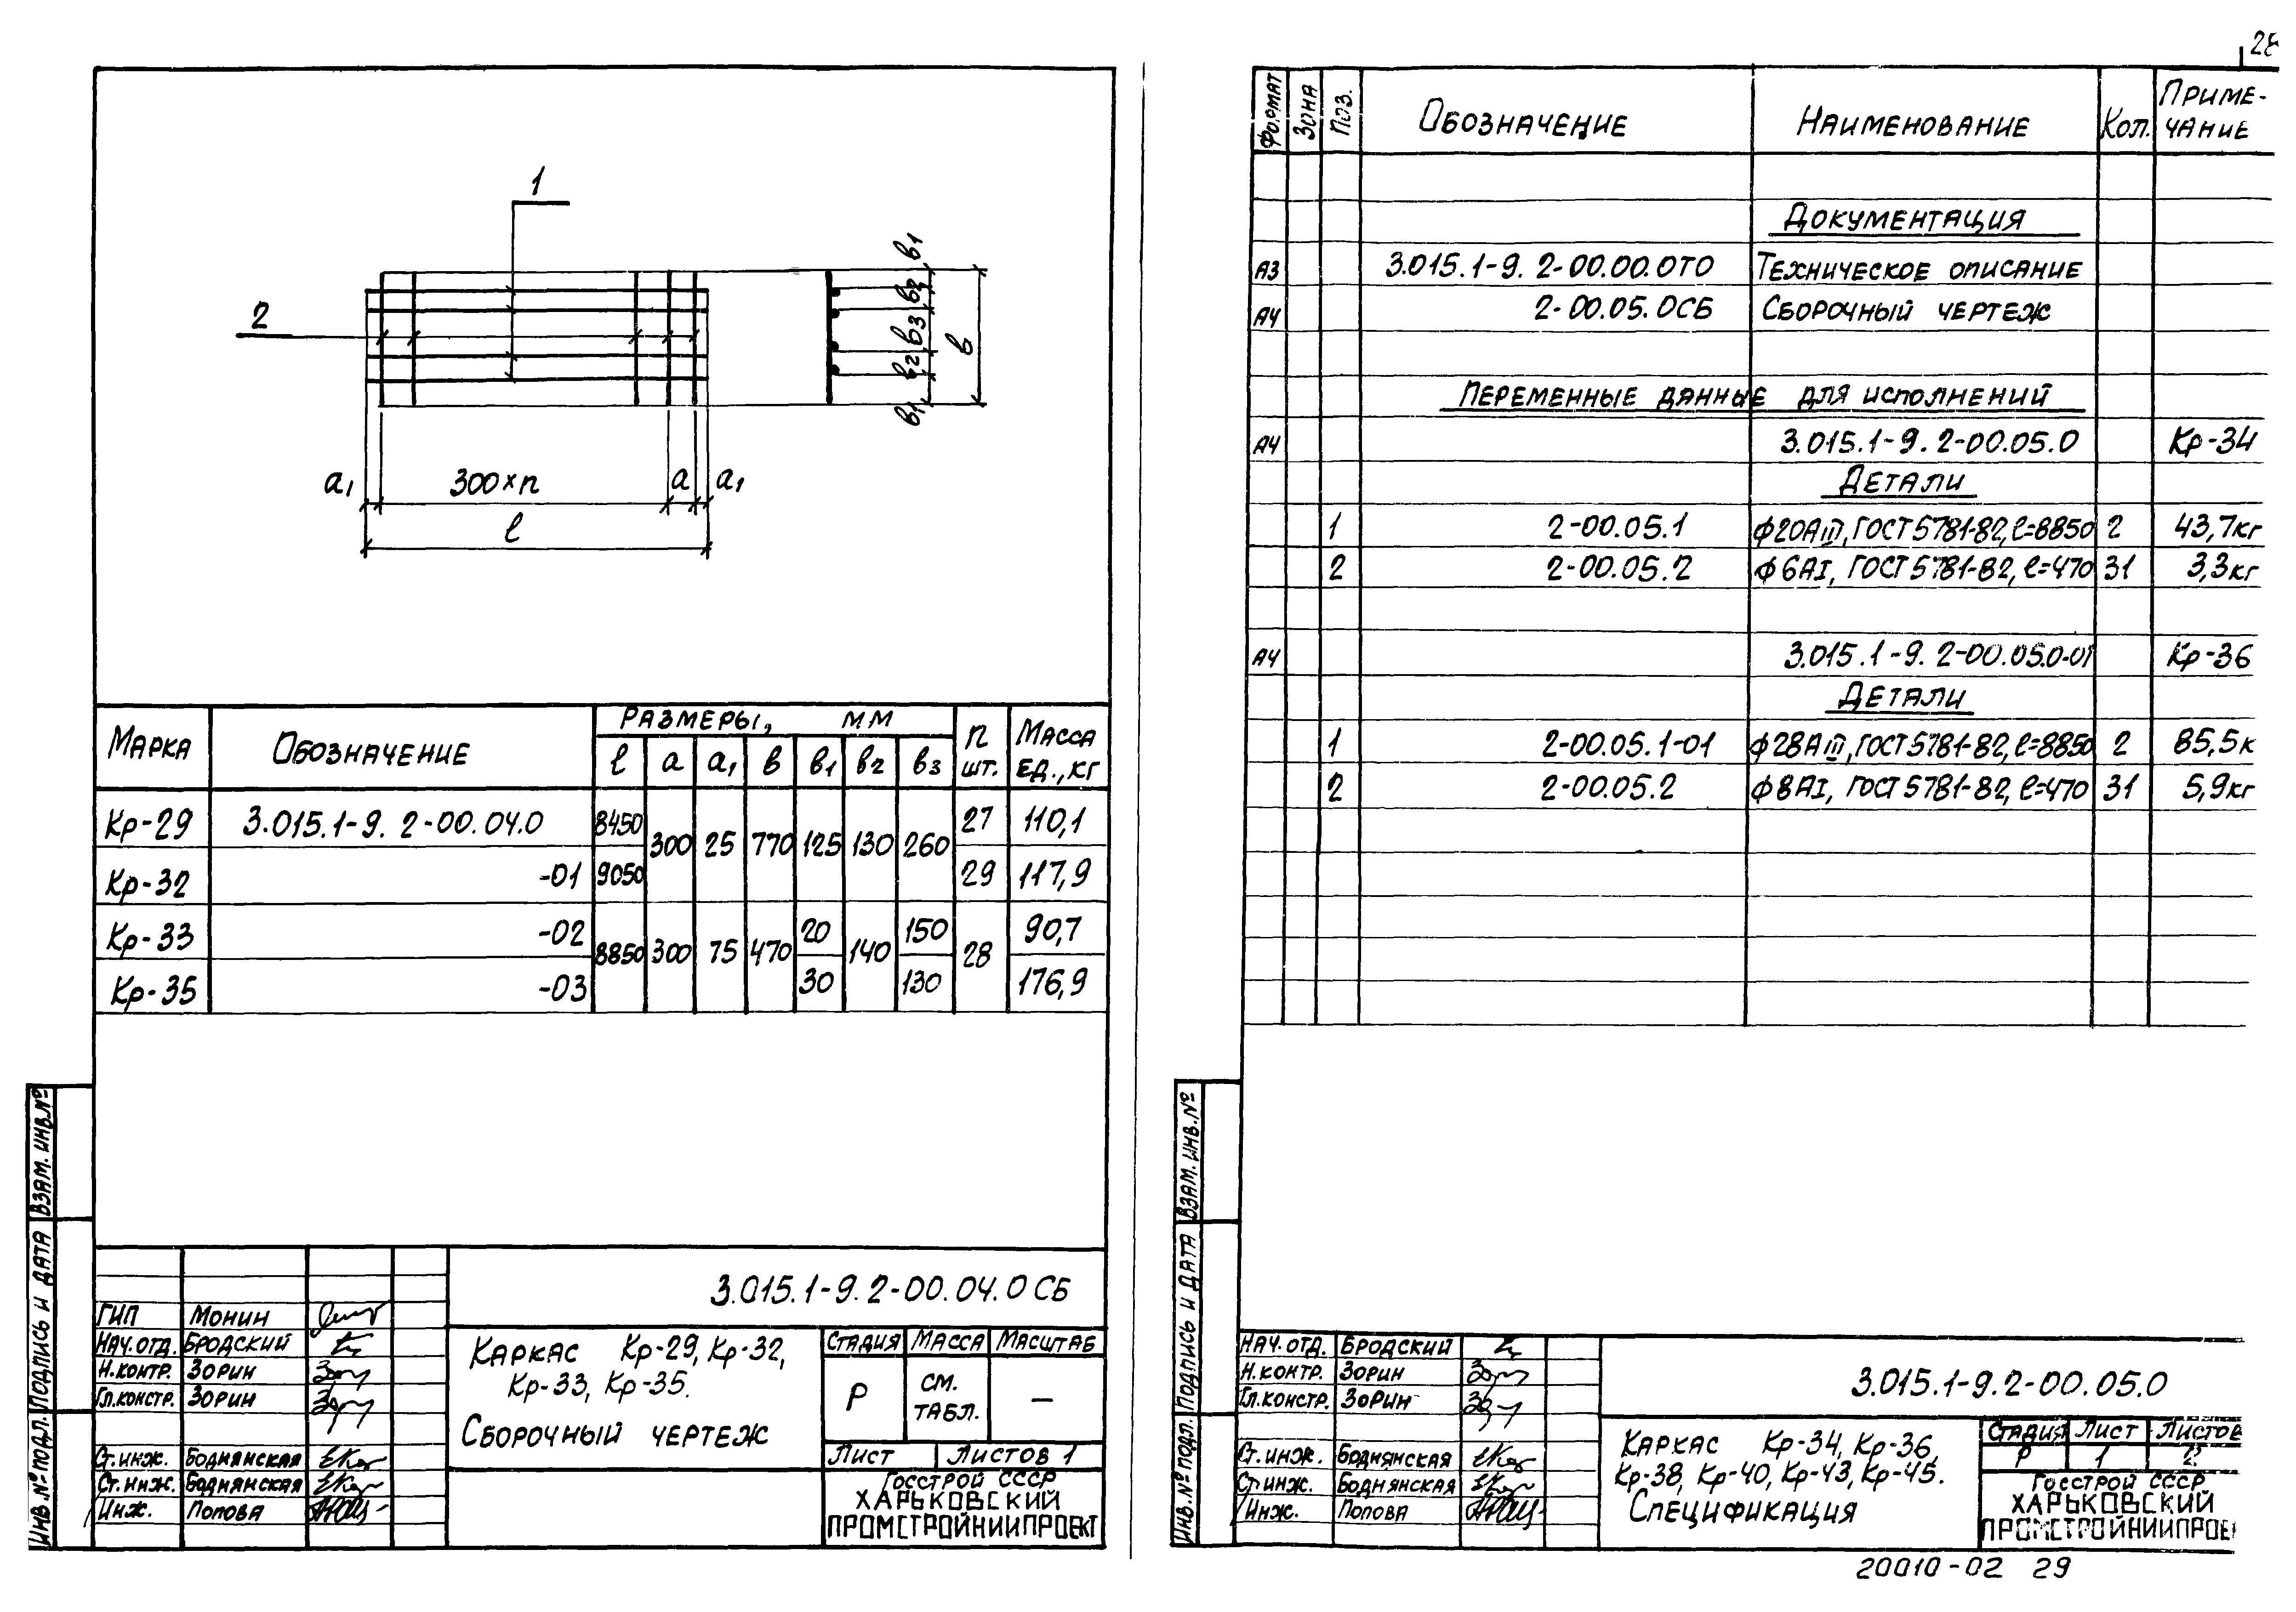 1
2
а₁ 300×п а а₁
ℓ
в1
в2
в3
в2
в1
в
Марка Обозначение Размеры, мм п шт. Масса ед., кг
ℓ а а₁ в в1 в2 в3
Кр-29 3.015.1-9. 2-00.04.0 8450 300 25 770 125 130 260 27 110,1
Кр-32 -01 9050 29 117,9
Кр-33 -02 8850 300 75 470 20 140 150 28 90,7
Кр-35 -03 30 130 176,9
3.015.1-9.2-00.04.0 СБ
ГИП Монин
Нач.отд. Бродский
Н.контр. Зорин
Гл.констр. Зорин
Ст.инж. Боднянская
Ст.инж. Боднянская
Инж. Попова
Каркас Кр-29, Кр-32,
Кр-33, Кр-35.
Сборочный чертеж
Стадия Масса Масштаб
Р см. табл. —
Лист Листов 1
Госстрой СССР
ХАРЬКОВСКИЙ
ПРОМСТРОЙНИИПРОЕКТ
Взам. инв.№
Подпись и дата
Инв.№ подл.
28
Формат Зона Поз. Обозначение Наименование Кол. Приме-
чание
Документация
А3 3.015.1-9. 2-00.00.0ТО Техническое описание
А4 2-00.05.0СБ Сборочный чертеж
Переменные данные для исполнений
А4 3.015.1-9. 2-00.05.0 Кр-34
Детали
1 2-00.05.1 ф20АIII, ГОСТ 5781-82, ℓ=8850 2 43,7кг
2 2-00.05.2 ф6АI, ГОСТ 5781-82, ℓ=470 31 3,3кг
А4 3.015.1-9. 2-00.05.0-01 Кр-36
Детали
1 2-00.05.1-01 ф28АIII, ГОСТ 5781-82, ℓ=8850 2 85,5к
2 2-00.05.2 ф8АI, ГОСТ 5781-82, ℓ=470 31 5,9кг
Взам. инв.№
Подпись и дата
Инв.№ подл.
Нач.отд. Бродский
Н.контр. Зорин
Гл.констр. Зорин
Ст.инж. Боднянская
Ст.инж. Боднянская
Инж. Попова
3.015.1-9.2-00.05.0
Каркас Кр-34, Кр-36,
Кр-38, Кр-40, Кр-43, Кр-45.
Спецификация
Стадия Лист Листов
Р 1 2
Госстрой СССР
ХАРЬКОВСКИЙ
ПРОМСТРОЙНИИПРОЕ
20010-02 29